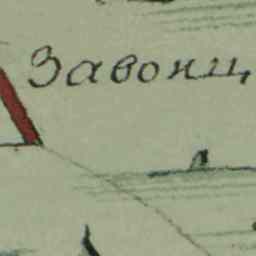 Завонц